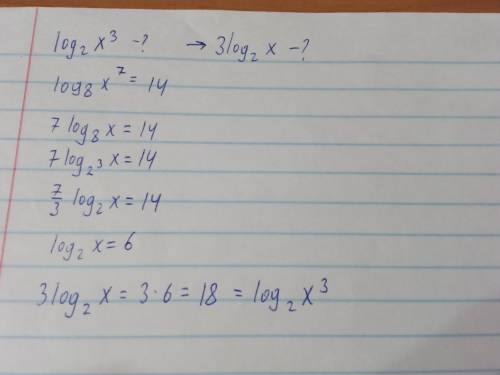 log₂ x³ -? → 3log₂ x -?
log₈ x⁷ = 14
7 log₈ x = 14
7 log₂³ x = 14
7/3 log₂ x = 14
log₂ x = 6
3 log₂ x = 3·6 = 18 = log₂ x³